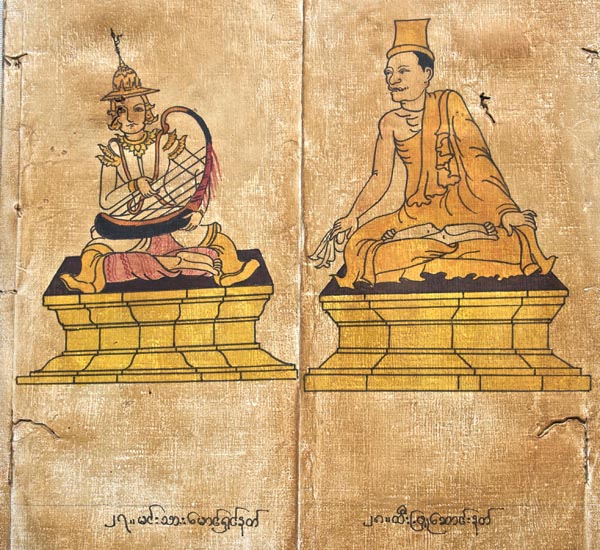 ၂၇။ မင်းသားမောင်ရှင်နတ်
၂၈။ ထီးဖြူဆောင်းနတ်